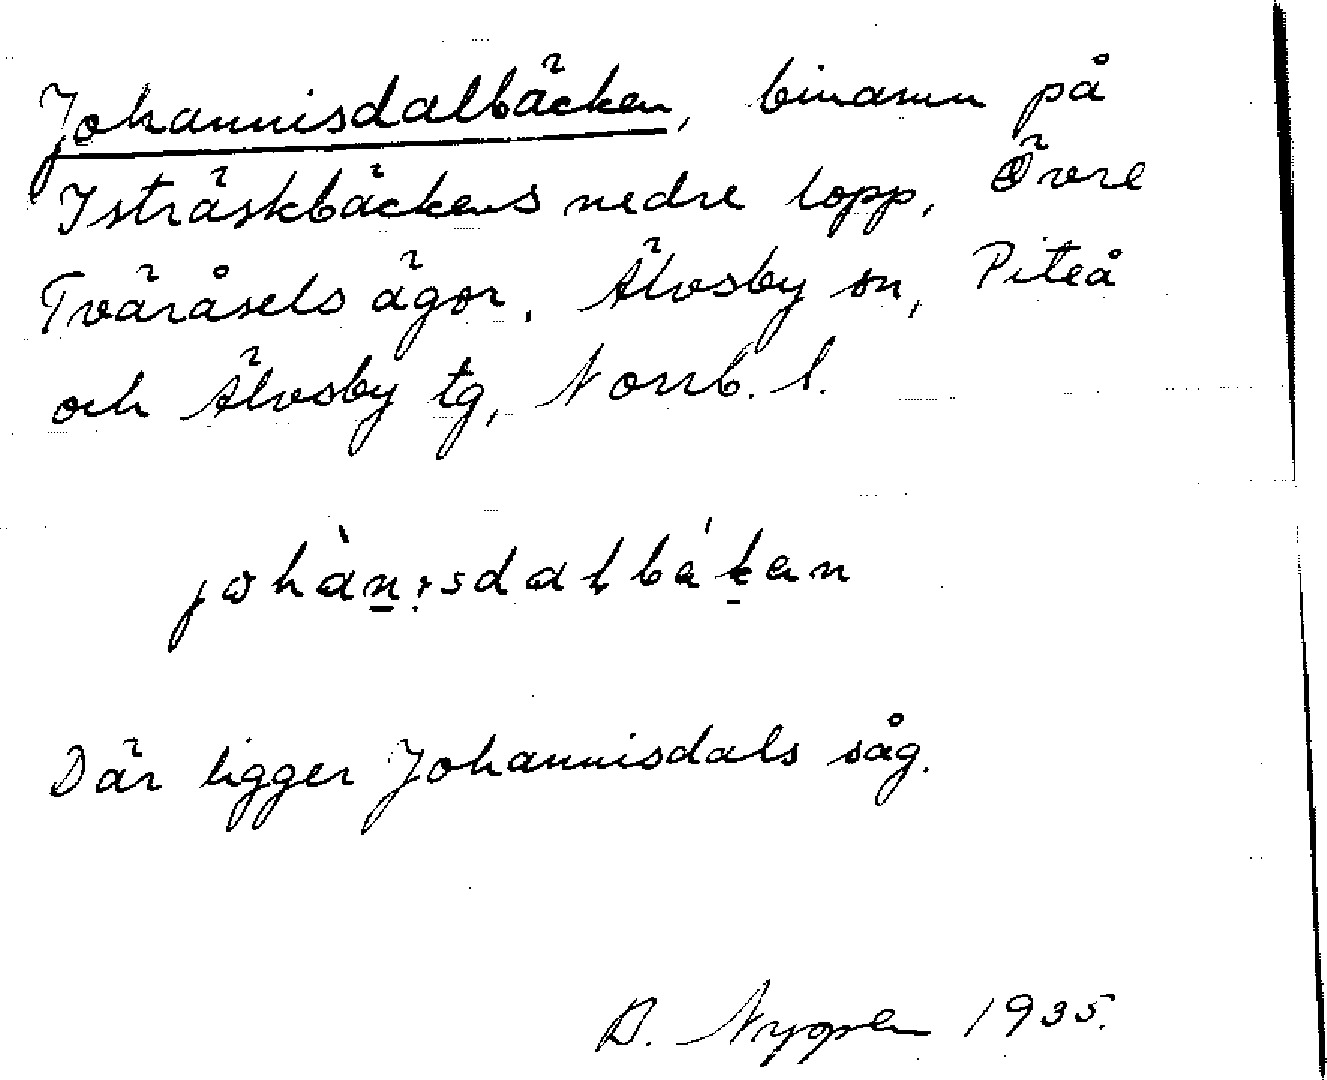 Johannisdalbäcken, binamn på
Isträskbäckens nedre lopp, Övre
Tväråsels ägor, Älvsby sn, Piteå
och Älvsby tg, Norrb. l.
Där ligger Johannisdals såg.
1935.